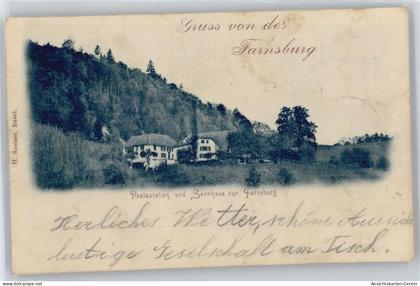 Gruss von der
Farnsburg
H. Speiser, Basel.
Restauration und Sennhaus zur Farnsburg
Herliches Wetter, schöne Aussicht
lustige Gesellschaft am Tisch.
Ansichtskarten-Center